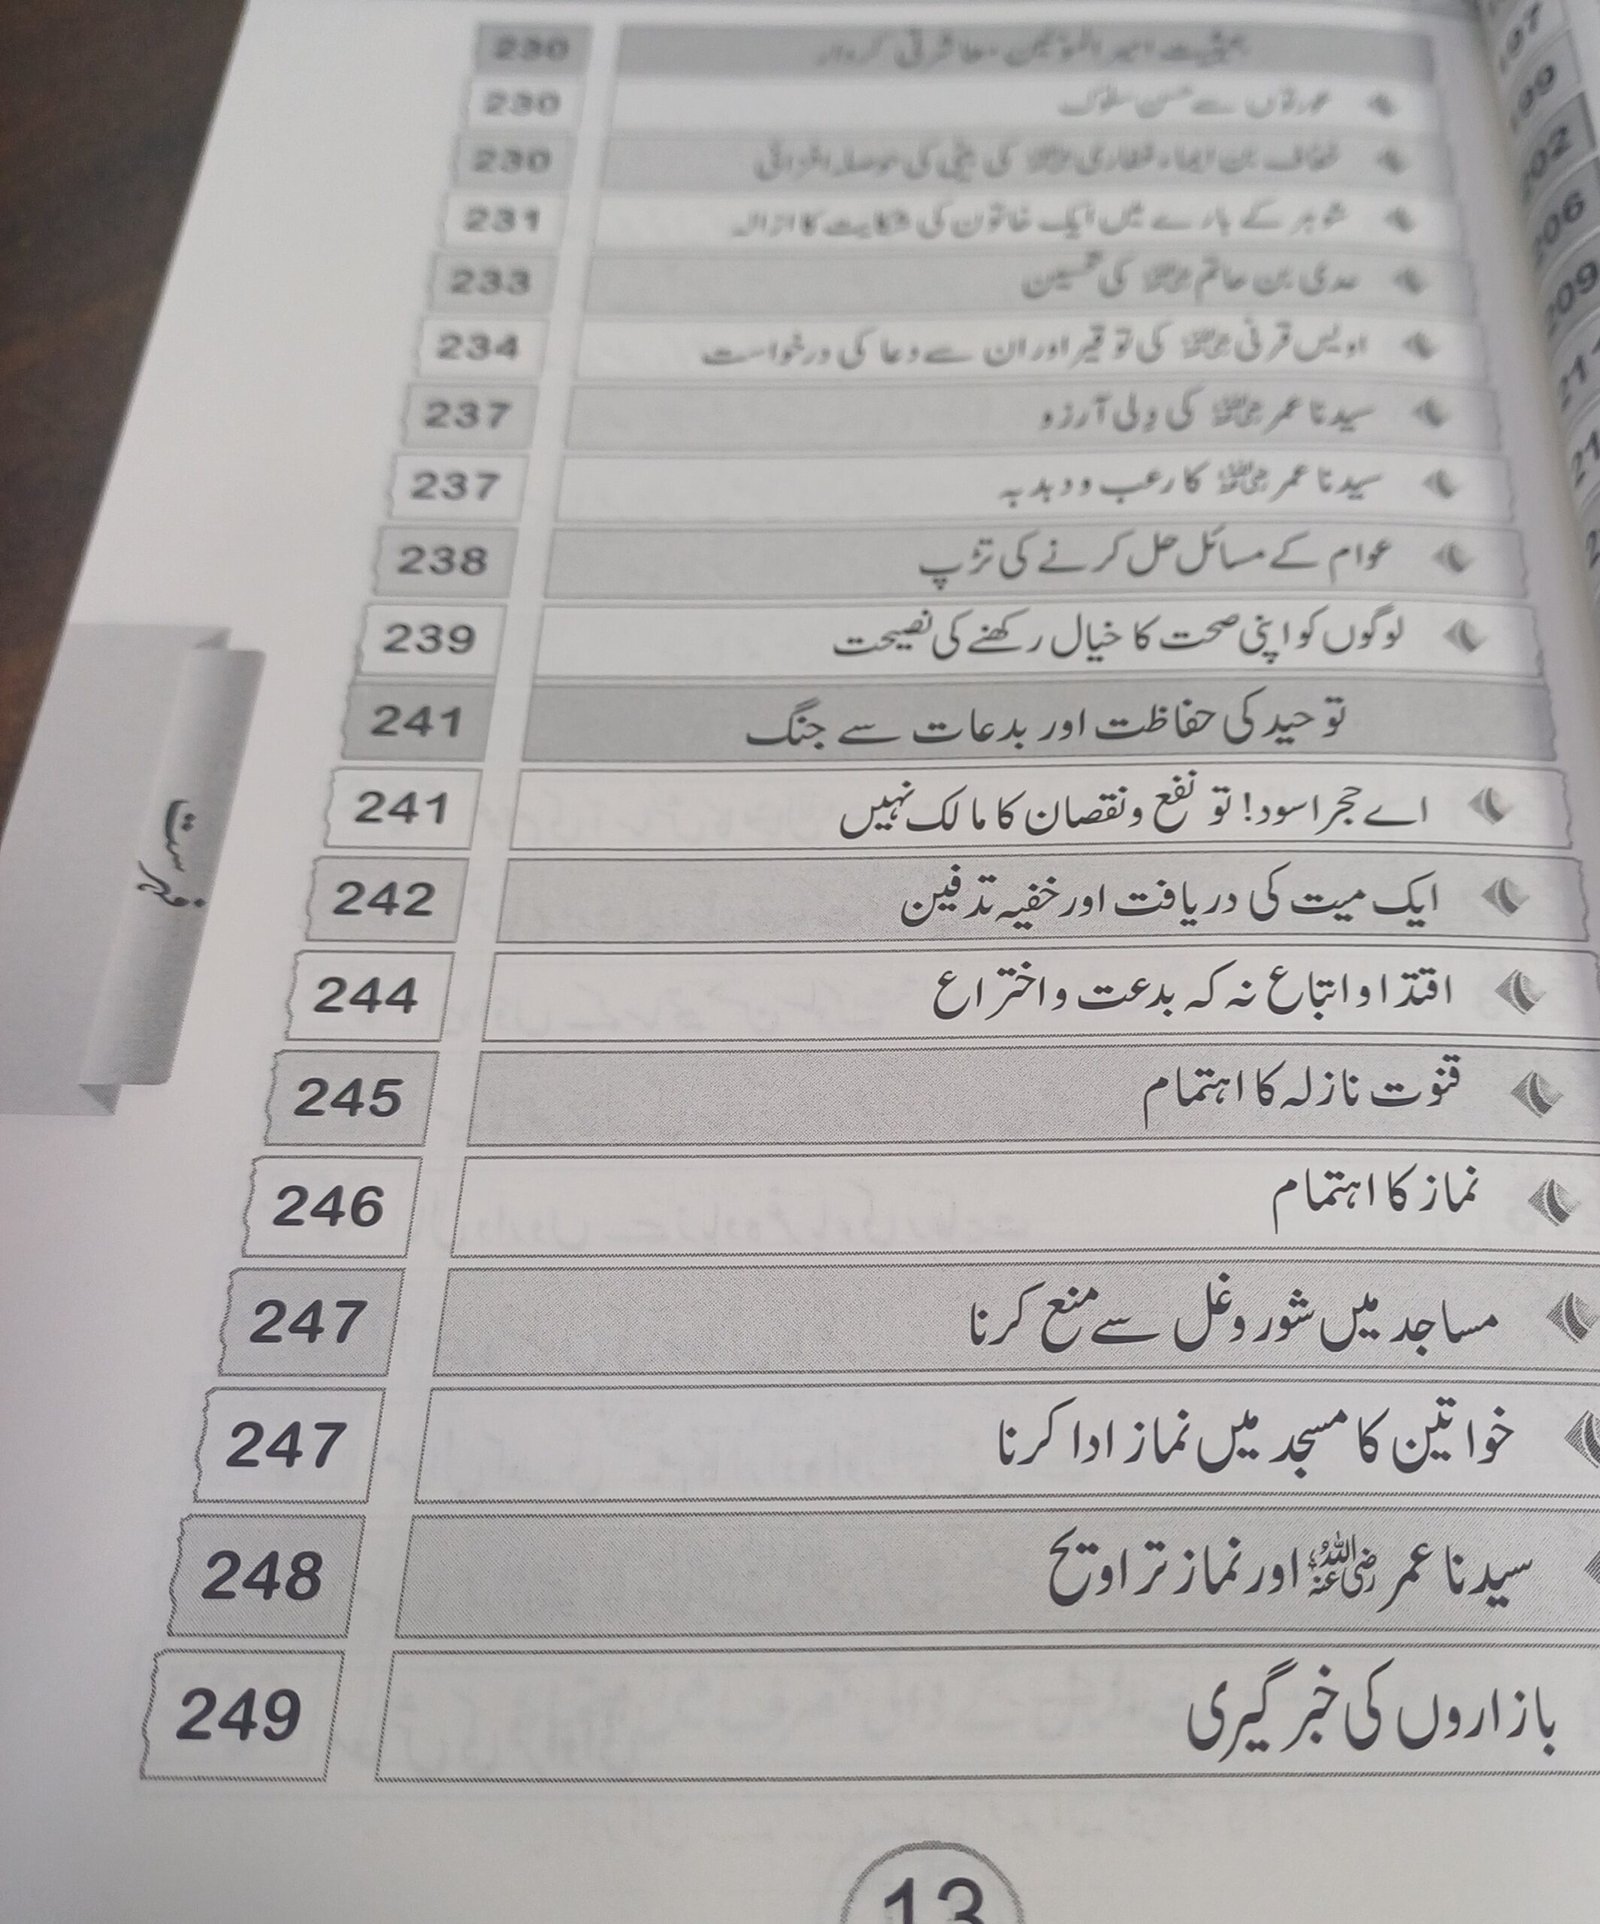 بحیثیت امیر المؤمنین معاشرتی کردار 230
عورتوں سے حسن سلوک 230
خفاف بن ایماء غفاری رضی اللہ عنہ کی بیٹی کی حوصلہ افزائی 230
شوہر کے بارے میں ایک خاتون کی شکایت کا ازالہ 231
عدی بن حاتم رضی اللہ عنہ کی تحسین 233
اویس قرنی رحمہ اللہ کی توقیر اور ان سے دعا کی درخواست 234
سیدنا عمر رضی اللہ عنہ کی دِلی آرزو 237
سیدنا عمر رضی اللہ عنہ کا رعب و دبدبہ 237
عوام کے مسائل حل کرنے کی تڑپ 238
لوگوں کو اپنی صحت کا خیال رکھنے کی نصیحت 239
توحید کی حفاظت اور بدعات سے جنگ 241
اے حجر اسود! تو نفع و نقصان کا مالک نہیں 241
ایک میت کی دریافت اور خفیہ تدفین 242
اقتدا و اتباع نہ کہ بدعت و اختراع 244
قنوت نازلہ کا اہتمام 245
نماز کا اہتمام 246
مساجد میں شور و غل سے منع کرنا 247
خواتین کا مسجد میں نماز ادا کرنا 247
سیدنا عمر رضی اللہ عنہ اور نماز تراویح 248
بازاروں کی خبر گیری 249
فہرست
13
197
199
202
206
209